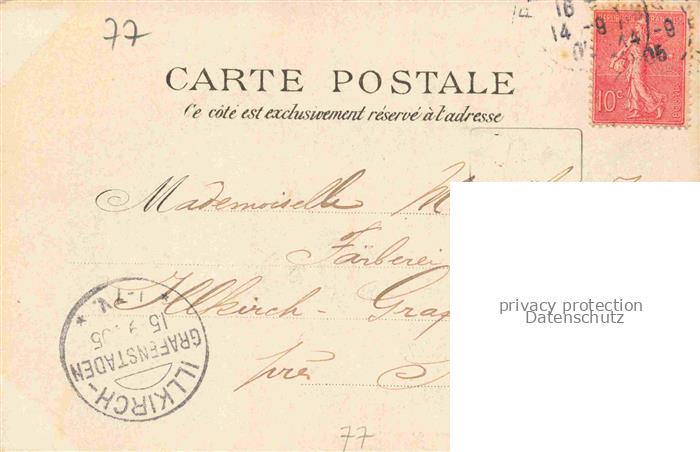 77
16
14 -9
14 -9
05
REPUBLIQUE FRANÇAISE
10c
POSTES
CARTE POSTALE
Ce côté est exclusivement réservé à l'adresse
Mademoiselle M
Färberei
Illkirch - Graf
près
privacy protection
Datenschutz
ILLKIRCH-
GRAFENSTADEN
15 9 05
77